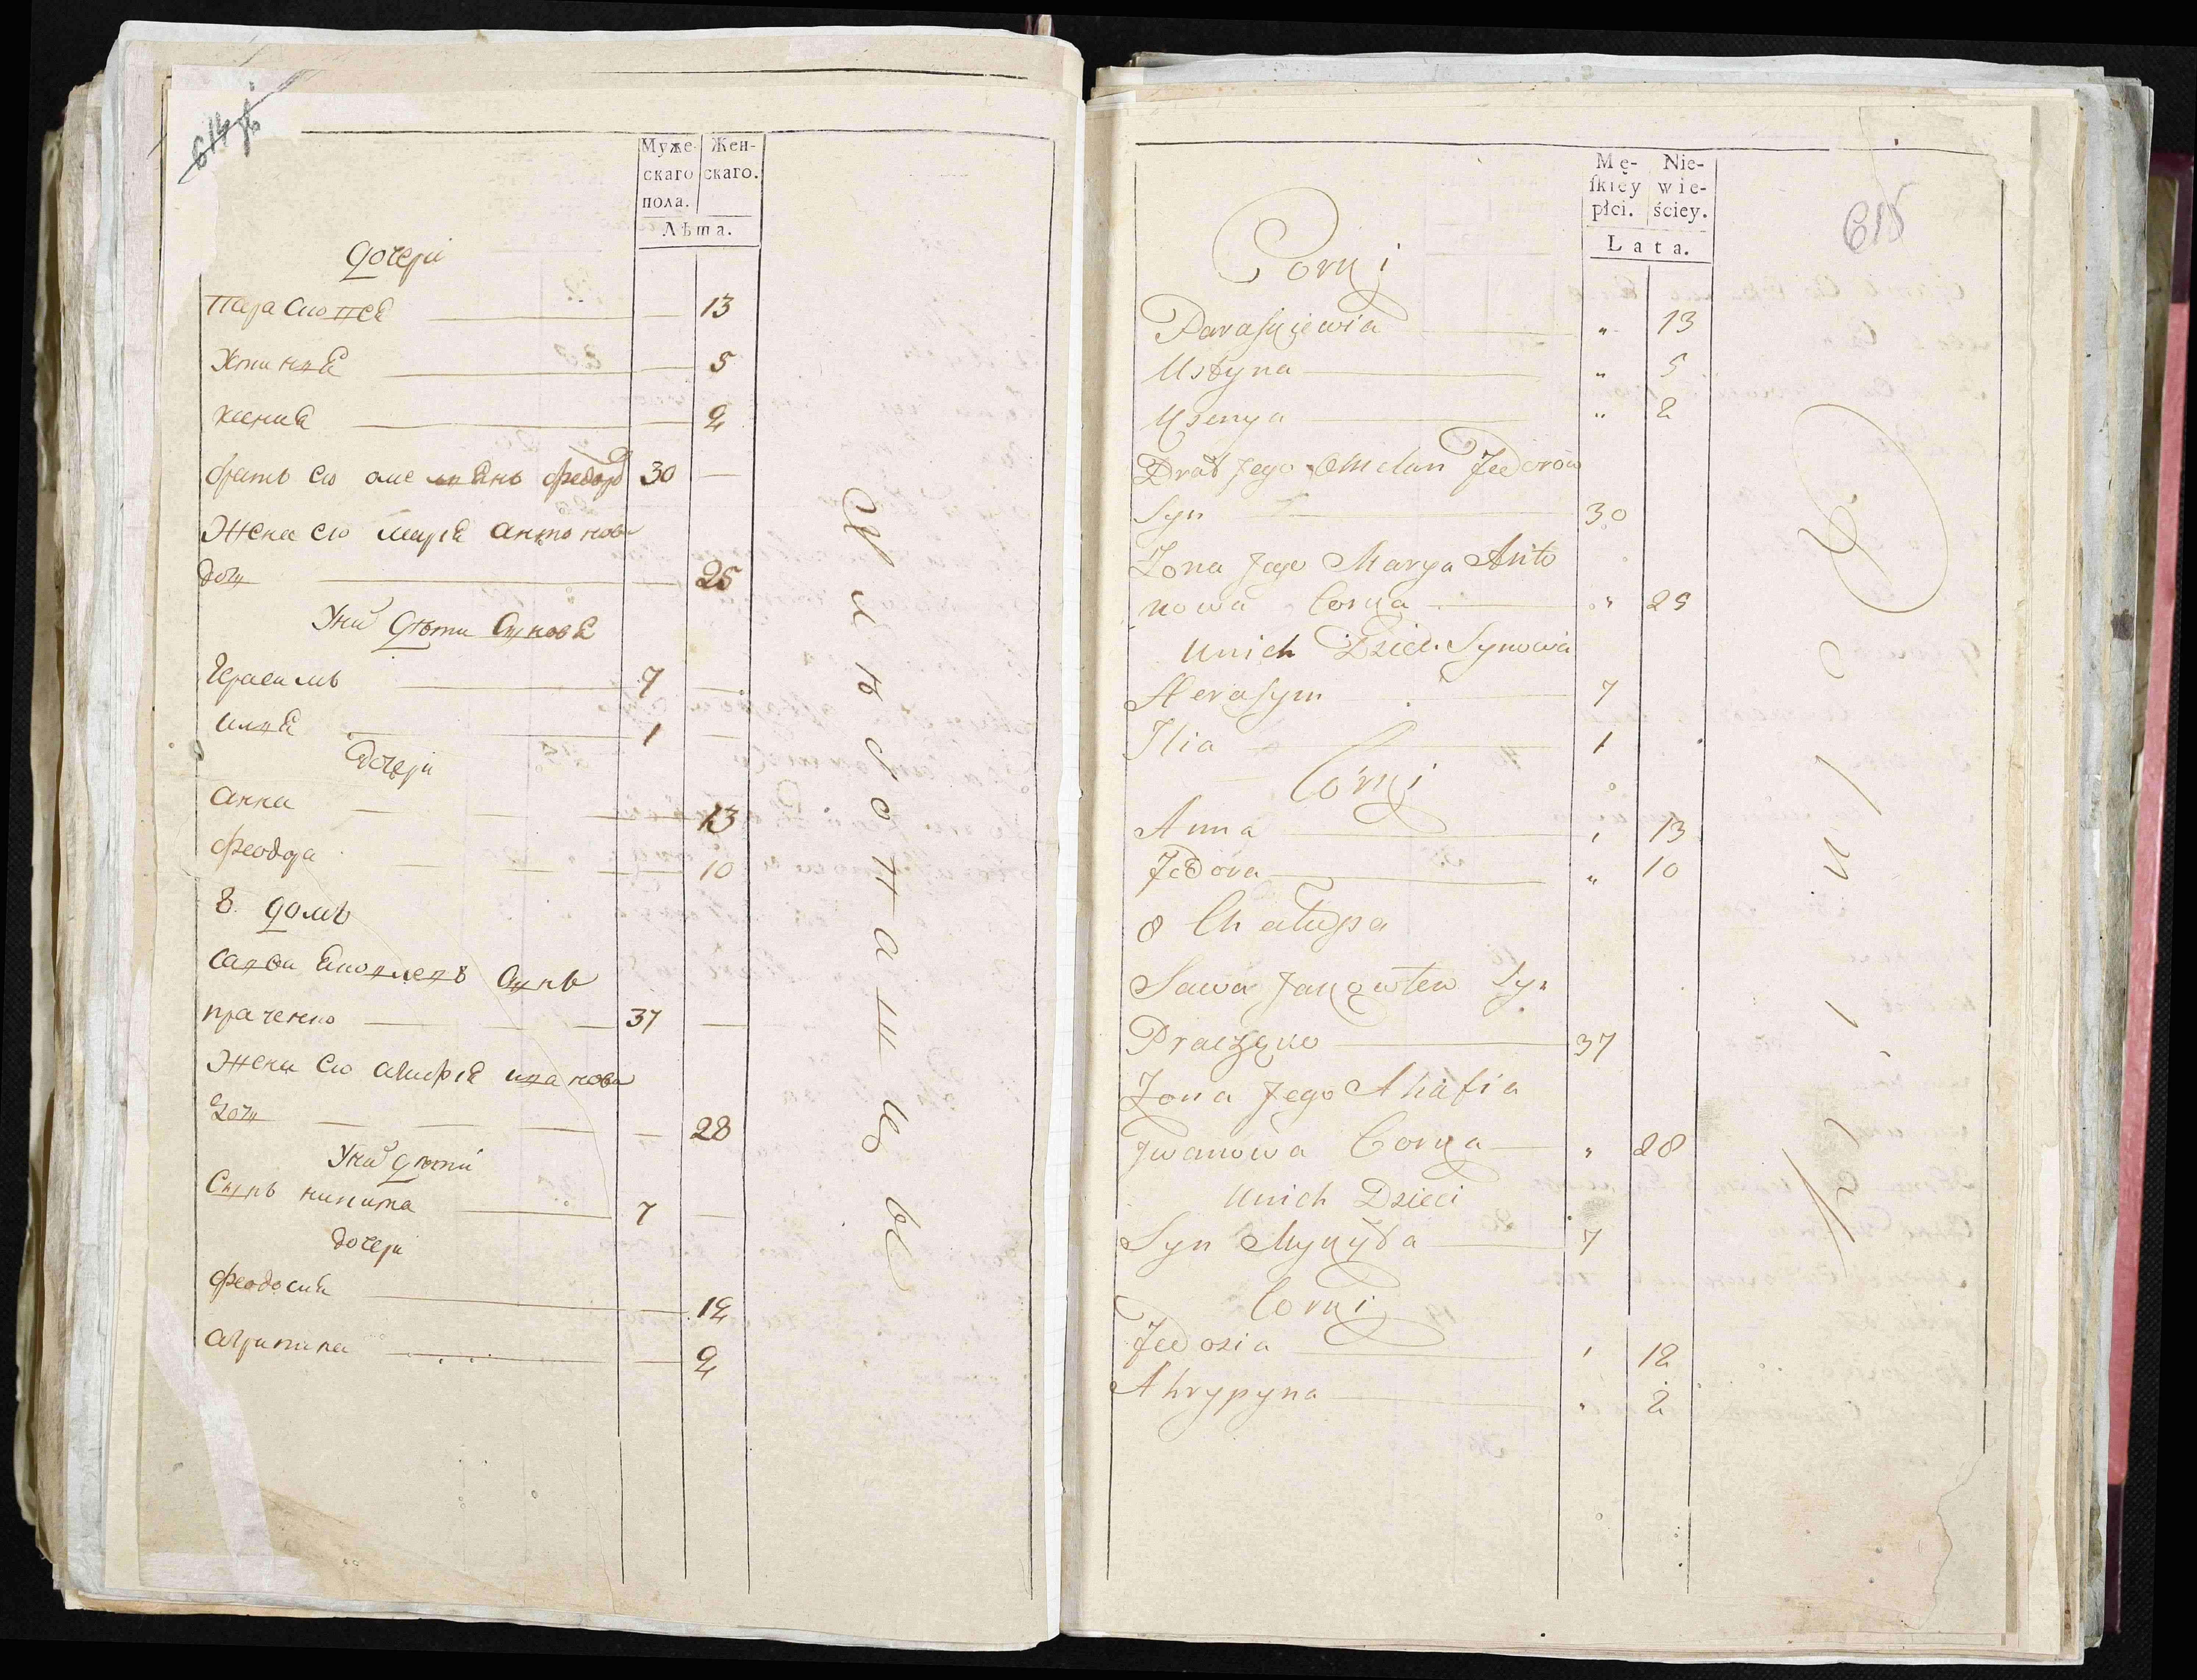 614 об
Муже- Жен-
скаго скаго.
пола.
Лѣта.
дочери
Параскопѣя 13
Хтиния 5
Ксения 2
братъ его омелянъ федоръ 30
Жена его мария антонова
дочъ 25
У них дѣти Сынове
Герасимъ 7
илия 1
дочери
анна 13
феодора 10
8 домъ
Савва Яковлевъ Сынъ
праченко 37
Жена его агафия иванова
дочъ 28
У них дѣти
Сынъ никита 7
дочери
феодосия 12
агрипина 2
Mę- Nie-
ſkiey wie-
płci. ściey.
Lata.
615
Corki
Paraſkiewia " 13
Ustyna " 5
Xsenya " 2
Brat Jego Omelan Fedorow
Syn 30
Zona Jego Marya Anto
nowa Corka " 25
Unich Dzieci Synowia
Herasym 7
Ilia 1
Córki
Anna " 13
Fedora " 10
8 Chalupa
Sawa Jakowlew Syn
Praczęko 37
Zona Jego Ahafia
Jwanowa Corka " 28
Unich Dzieci
Syn Mykyta 7
Corki
Fedosia " 12
Ahrypyna " 2